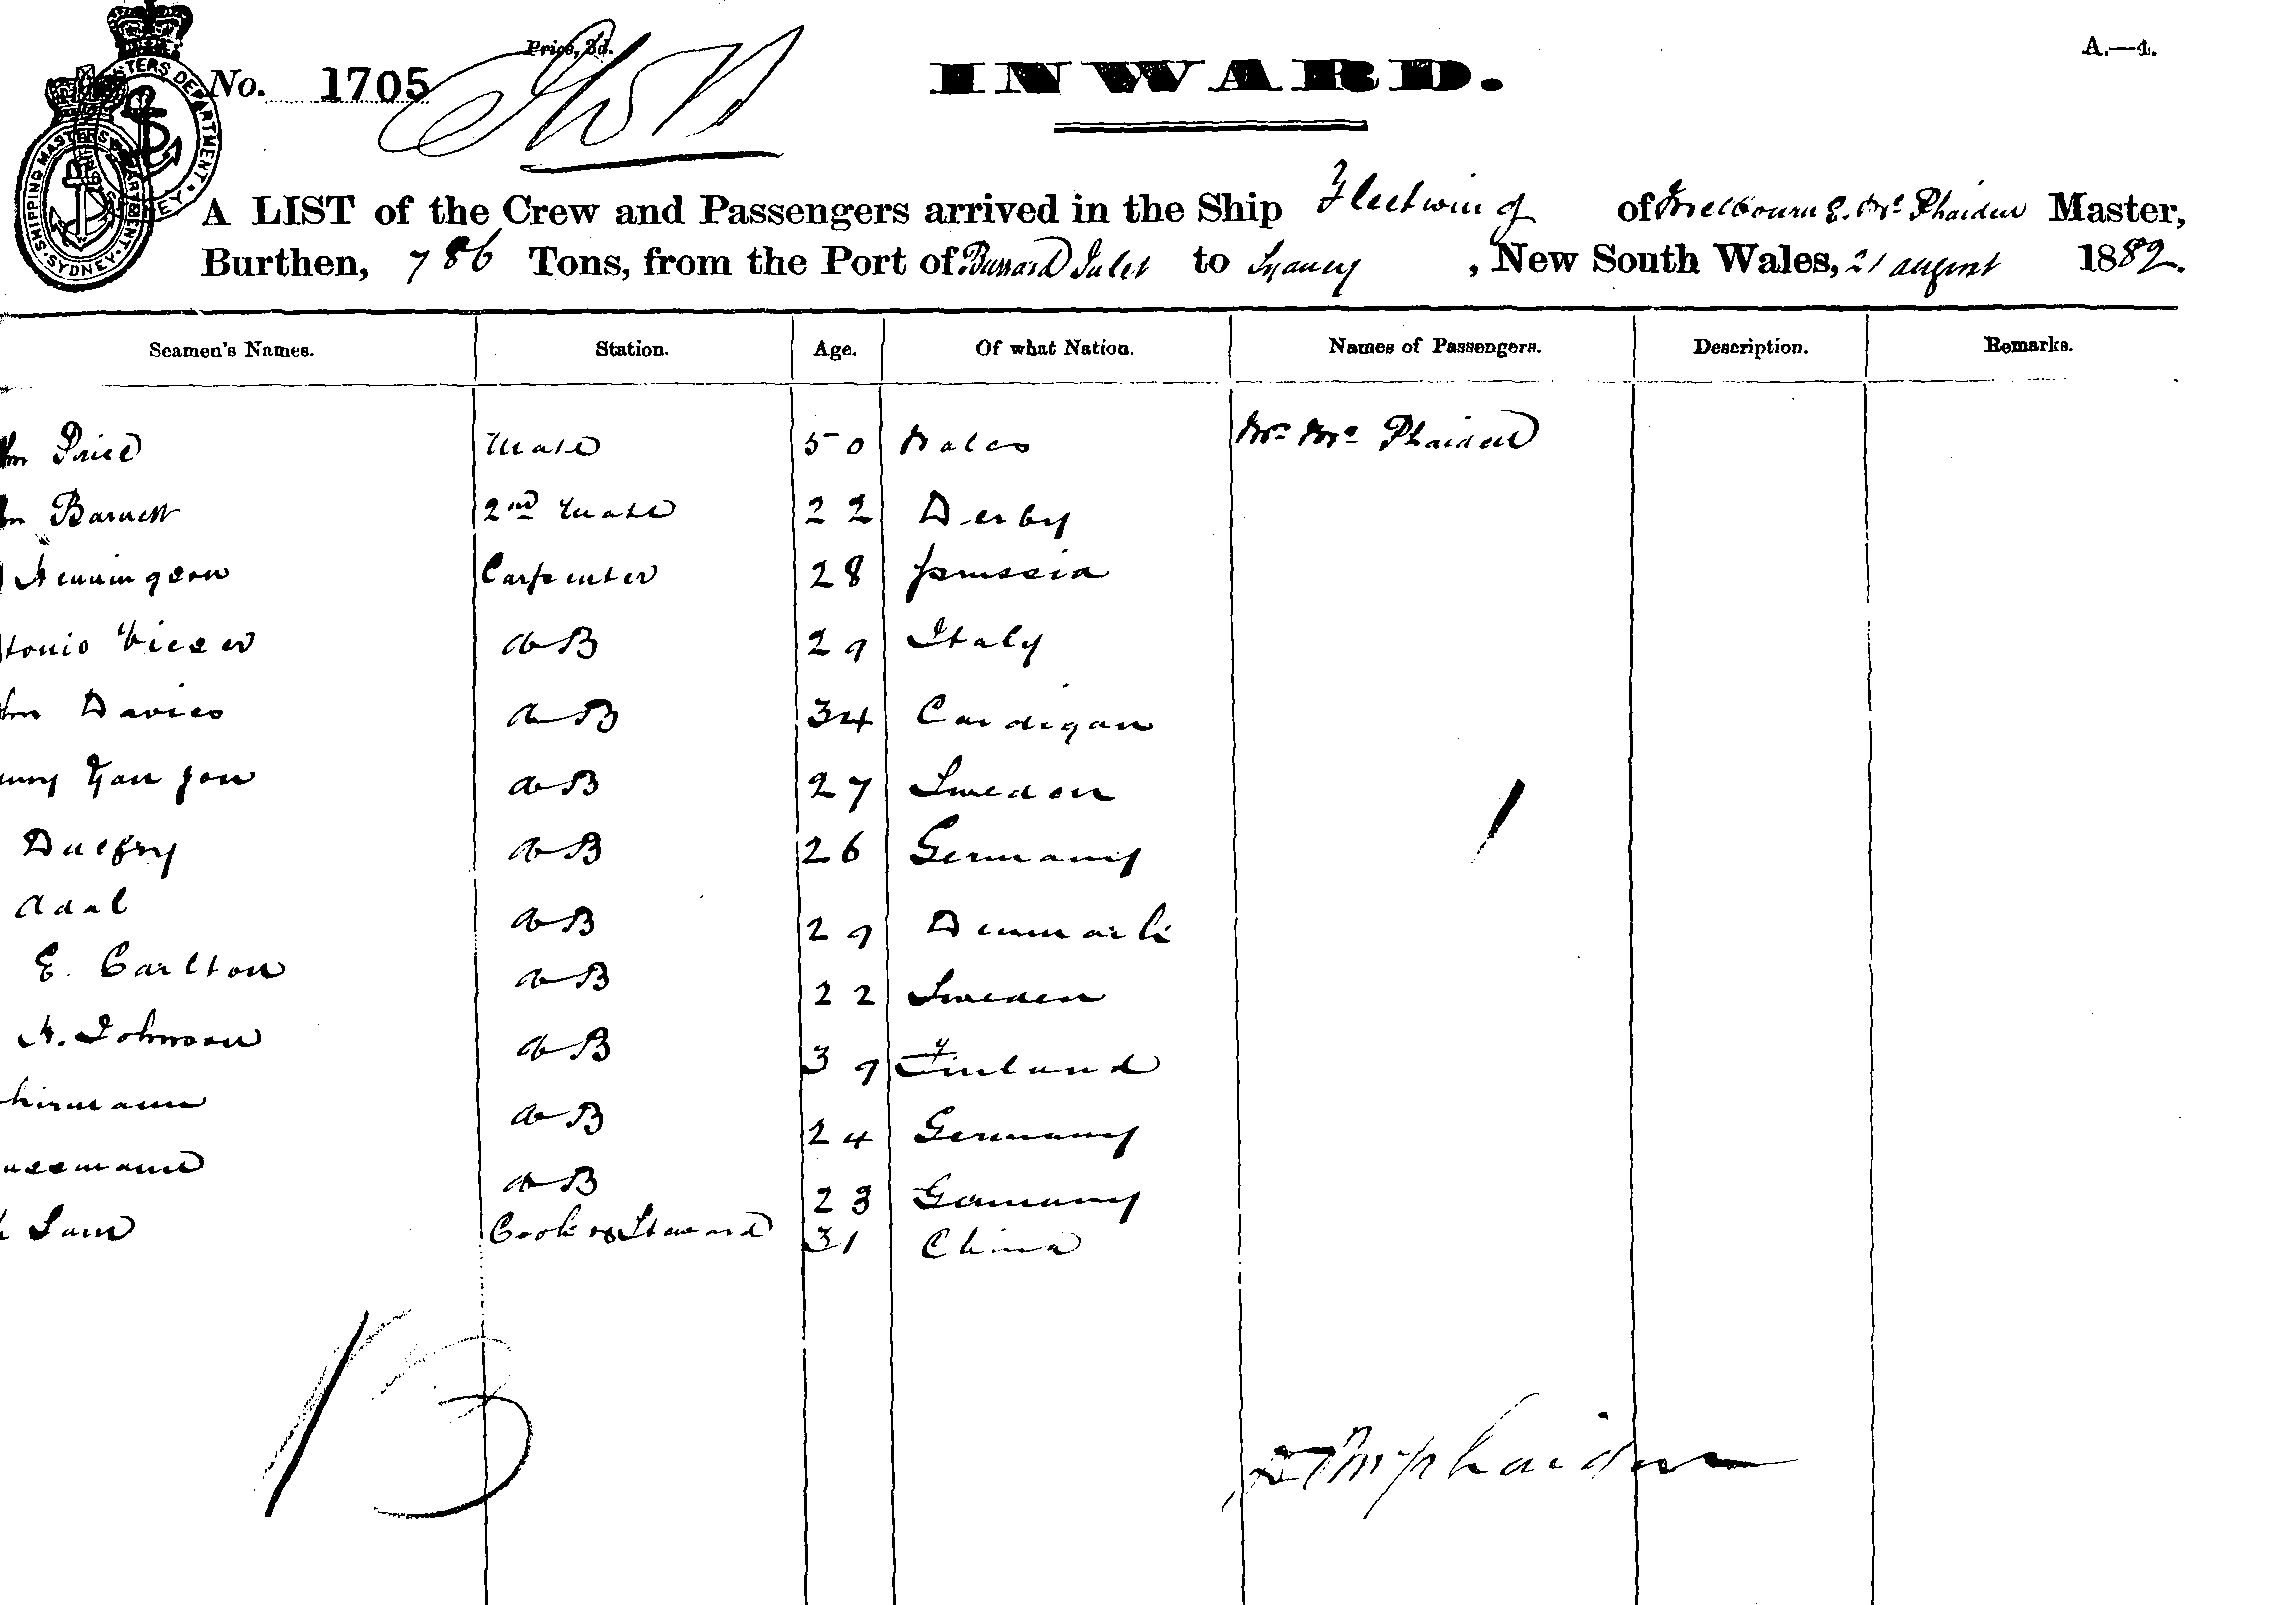 Price, 3d.
A.—4.
No. 1705
INWARD.
SHIPPING MASTERS DEPARTMENT SYDNEY
A LIST of the Crew and Passengers arrived in the Ship Fleetwing of Melbourne E. Mc Phaiden Master,
Burthen, 786 Tons, from the Port of Burrard Inlet to Sydney, New South Wales, 21 august 1882.
Seamen's Names. Station. Age. Of what Nation. Names of Passengers. Description. Remarks.
Price Mate 50 Wales Mrs Mc Phaiden
Barnett 2nd Mate 22 Derby
Henningsen Carpenter 28 prussia
tonio AB 29 Italy
Davies AB 34 Cardigan
AB 27 Sweden
AB 26 Germany
Adal AB 29 Denmark
E. Carlton AB 22 Sweden
A. Johnson AB 39 Finland
hirmann AB 24 Germany
AB 23 Germany
Sam Cook & Steward 31 China
1
13
E Mcphaiden